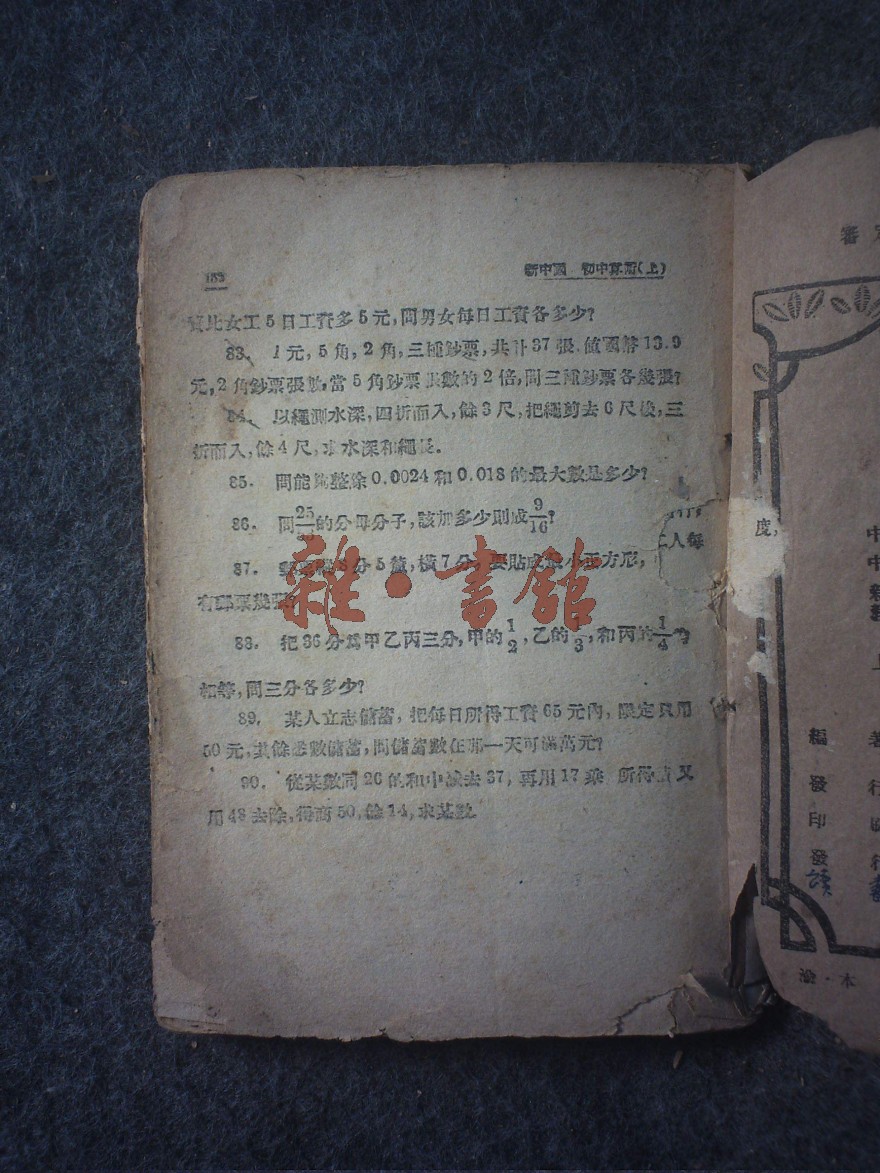 132
新中國 初中算術(上)
資比女工5日工資多5元,問男女每日工資各多少?
83. 1元,5角,2角,三種鈔票,共計37張,值國幣13.9
元,2角鈔票張數,當5角鈔票張數的2倍,問三種鈔票各幾張?
84. 以繩測水深,四折而入,餘3尺,把繩剪去6尺後,三
折而入,餘4尺,求水深和繩長.
85. 問能夠整除0.0024和0.018的最大數是多少?
86. 問25的分母分子,該加多少則成9/16?
87. 縱8分5釐,橫7分,要貼成最小正方形,
有郵票幾張?
88. 把36分為甲乙丙三分,甲的1/2,乙的1/3,和丙的1/4為
相等,問三分各多少?
89. 某人立志儲蓄,把每日所得工資65元內,限定只用
50元,其餘悉數儲蓄,問儲蓄數在那一天可滿萬元?
90. 從某數同26的和中減去37,再用17乘 所得積又
用48去除,得商50,餘14,求某數.
二人每
雜·書館
審定
度,
編
發
印
發
著
行
行
上
本·渝